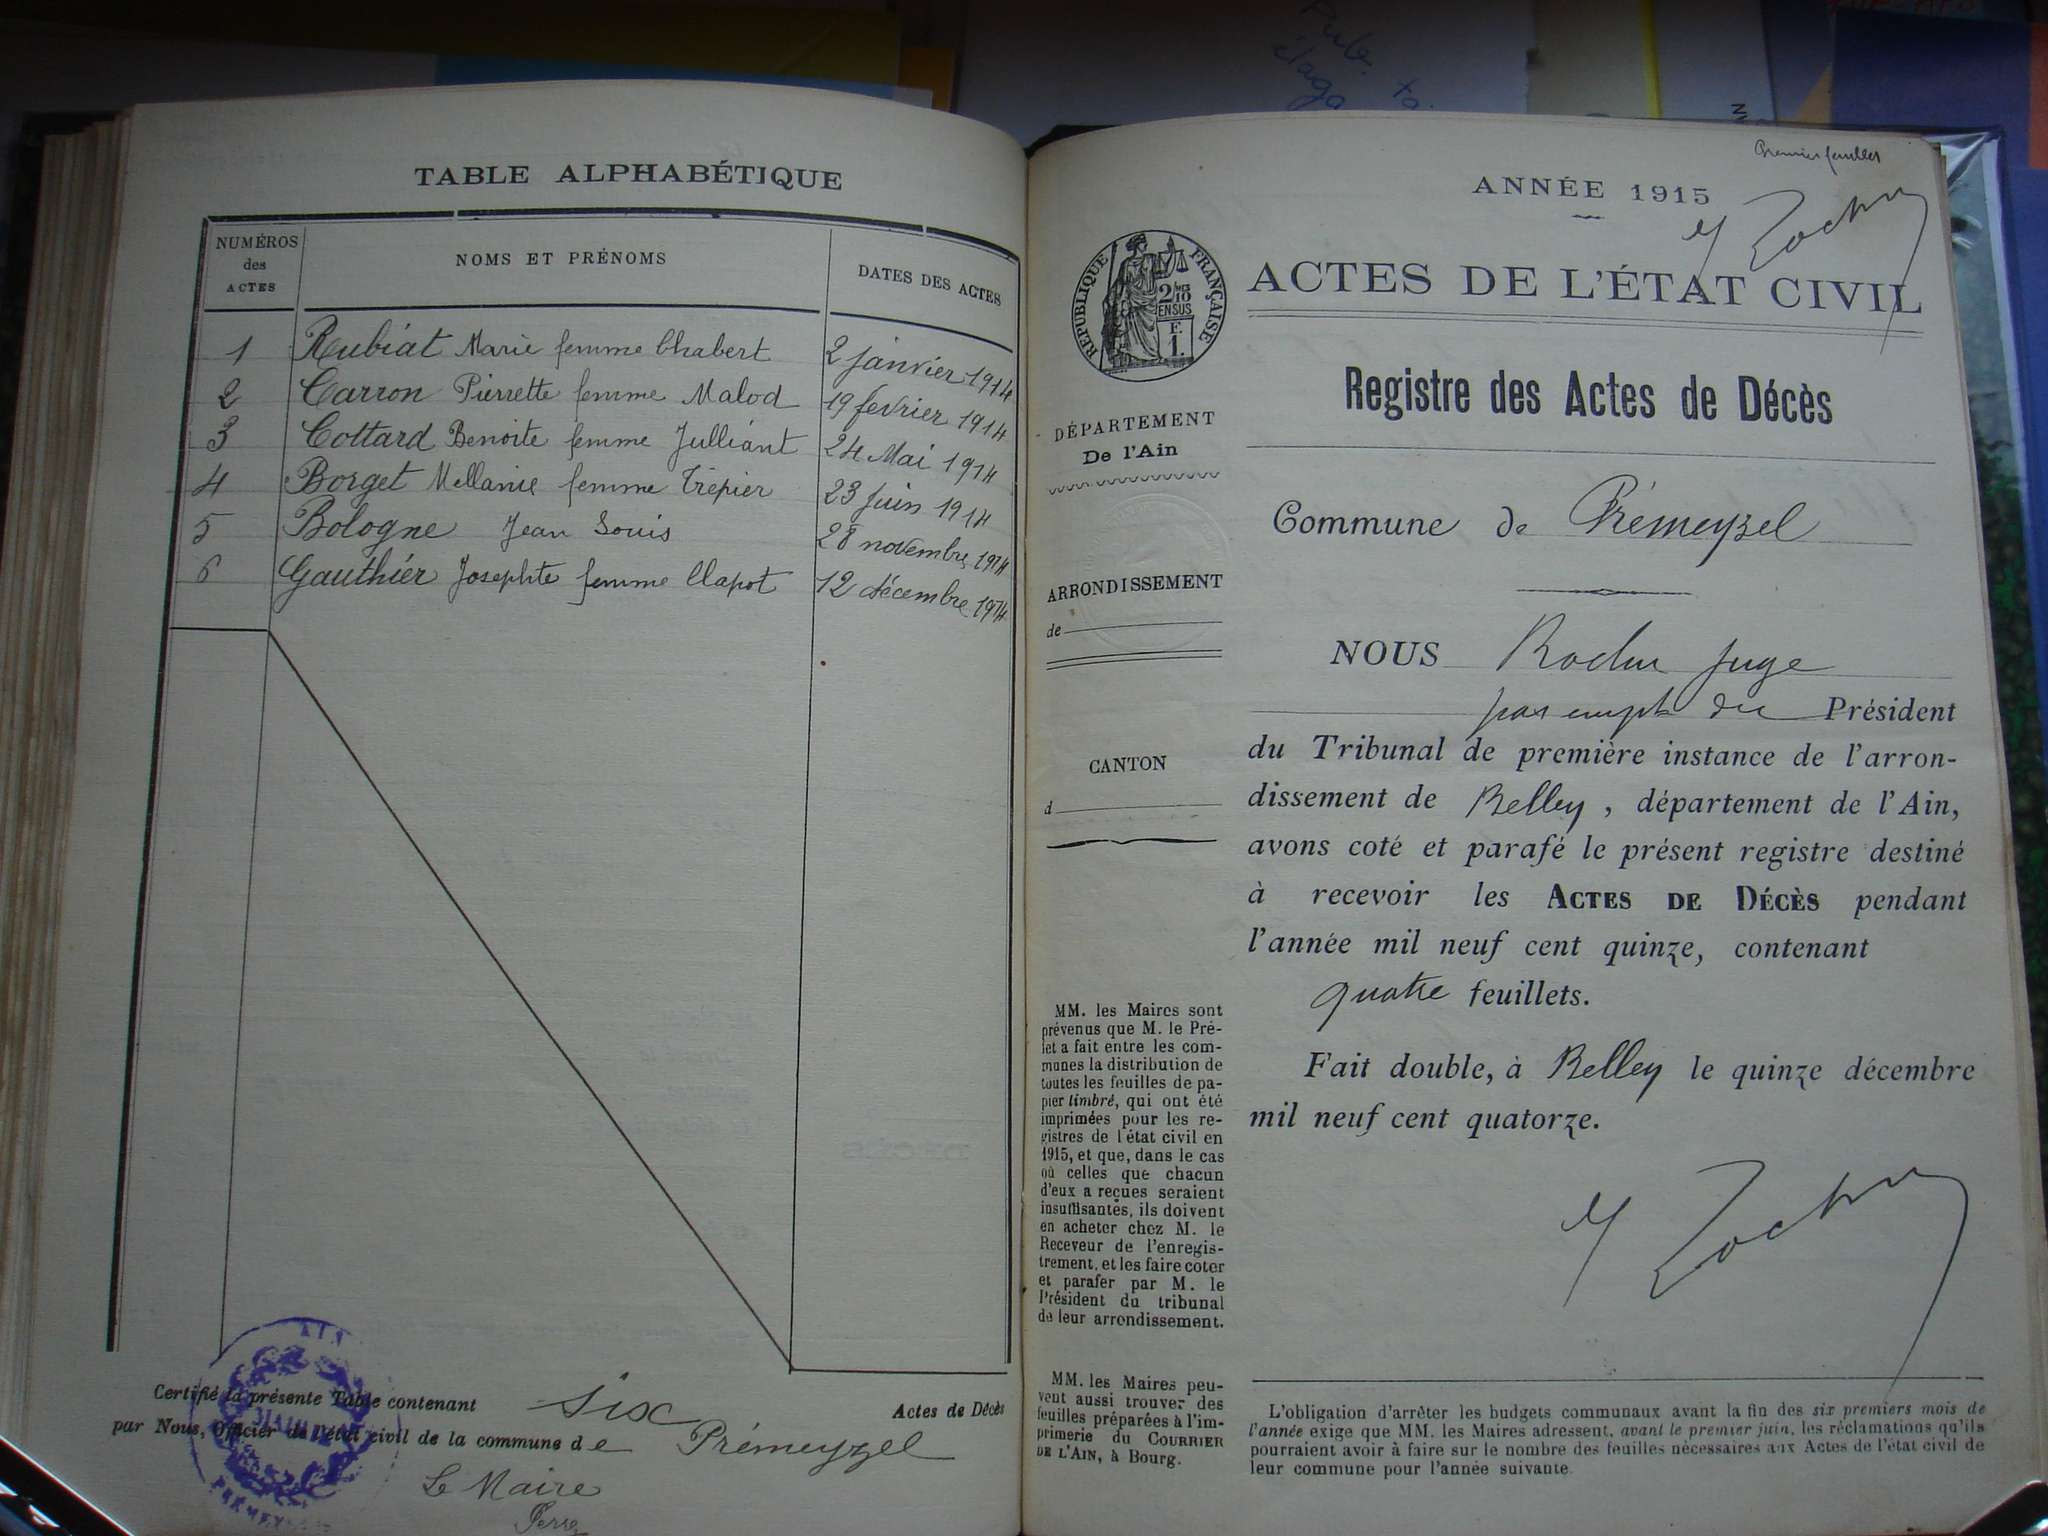 Pub.
TABLE ALPHABÉTIQUE
NUMÉROS des ACTES
NOMS ET PRÉNOMS
DATES DES ACTES
1 Rubiat Marie femme Chabert 2 janvier 1914
2 Carron Pierrette femme Malod 19 fevrier 1914
3 Cottard Benoite femme Julliant 24 Mai 1914
4 Borget Mellanie femme Trépier 23 Juin 1914
5 Bologne Jean Louis 28 novembre 1914
6 Gauthier Josephte femme Clapot 12 décembre 1914
Certifié la présente Table contenant six Actes de Décès
par Nous, Officier de l'état civil de la commune de Prémeyzel
Le Maire
AIN
MAIRIE
Premier feuillet
ANNÉE 1915
RÉPUBLIQUE FRANÇAISE
2/10
EN SUS
F.
1.
ACTES DE L'ÉTAT CIVIL
Registre des Actes de Décès
DÉPARTEMENT
De l'Ain
Commune de Prémeyzel
ARRONDISSEMENT
de
NOUS juge
du Président
du Tribunal de première instance de l'arron-
CANTON
d
dissement de Belley, département de l'Ain,
avons coté et parafé le présent registre destiné
à recevoir les ACTES DE DÉCÈS pendant
l'année mil neuf cent quinze, contenant
quatre feuillets.
Fait double, à Belley le quinze décembre
mil neuf cent quatorze.
MM. les Maires sont
prévenus que M. le Pré-
fet a fait entre les com-
munes la distribution de
toutes les feuilles de pa-
pier timbré, qui ont été
imprimées pour les re-
gistres de l'état civil en
1915, et que, dans le cas
où celles que chacun
d'eux a reçues seraient
insuffisantes, ils doivent
en acheter chez M. le
Receveur de l'enregis-
trement, et les faire coter
et parafer par M. le
Président du tribunal
de leur arrondissement.
MM. les Maires peu-
vent aussi trouver des
feuilles préparées à l'im-
primerie du COURRIER
DE L'AIN, à Bourg.
L'obligation d'arrêter les budgets communaux avant la fin des six premiers mois de
l'année exige que MM. les Maires adressent, avant le premier juin, les réclamations qu'ils
pourraient avoir à faire sur le nombre des feuilles nécessaires aux Actes de l'état civil de
leur commune pour l'année suivante.